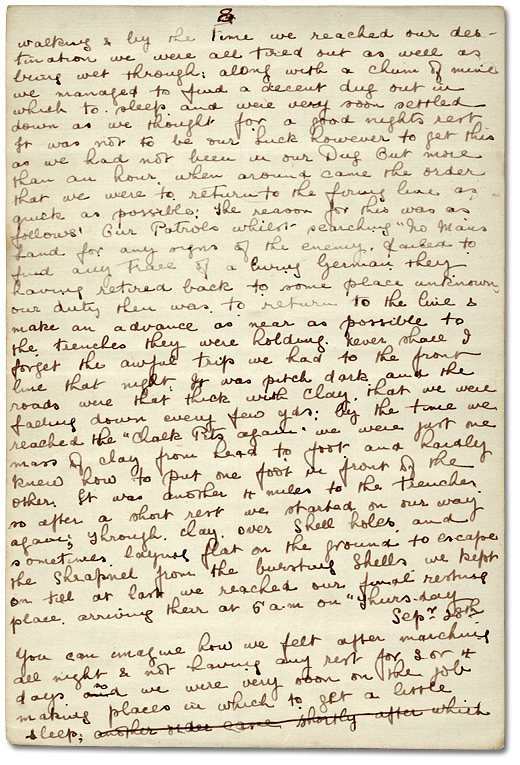 8
walking & by the time we reached our des-
tination we were all tired out as well as
being wet through; along with a chum of mine
we managed to find a decent dug out in
which to sleep and were very soon settled
down as we thought for a good nights rest
It was not to be our luck however to get this
as we had not been in our Dug Out more
than an hour when around came the order
that we were to return to the firing line as
quick as possible; The reason for this was as
follows! Our Patrols whilst searching "No Mans
Land for any signs of the enemy, failed to
find any trace of a living German they
having retired back to some place unknown,
our duty then was to return to the line &
make an advance as near as possible to
the trenches they were holding. Never shall I
forget the awful trip we had to the front
line that night. It was pitch dark and the
roads were that thick with clay, that we were
falling down every few yds; By the time we
reached the "Chalk Pits again" we were just one
mass of clay from head to foot and hardly
knew how to put one foot in front of the
other. It was another 4 miles to the trenches
so after a short rest we started on our way
again; through clay, over Shell holes and
sometimes laying flat on the ground to escape
the Shrapnel from the bursting Shells we kept
on till at last we reached our final resting
place, arriving their at 5 a.m on "Thursday
Sepr 28th
You can imagine how we felt after marching
all night & not having any rest for 3 or 4
days and we were very soon on the job
making places in which to get a little
sleep; another order came shortly after which